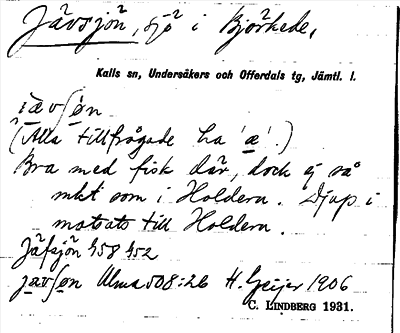 Jävsjön, sjö i Björkede,
Kalls sn, Undersåkers och Offerdals tg, Jämtl. l.
i̯ævʃøn
(Alla tillfrågade ha 'æ'.)
Bra med fisk där, dock ej så
mkt som i Holdern. Djup i
motsats till Holdern.
Jäfsjön 458 452
jævʃøn Ulma 508:26 H. Geijer 1906
C. LINDBERG 1931.